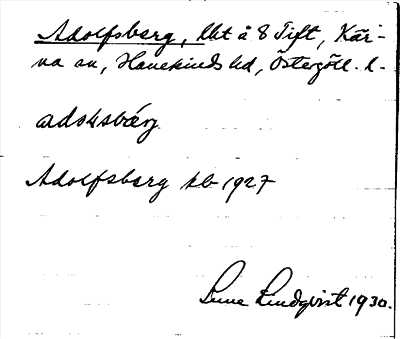 Adolfsberg, lht å 8 Tift, Kär-
na sn, Hanekinds hd, Östergötl. l.
adolsbärj
Adolfsberg kb 1927
Sune Lindqvist 1930.